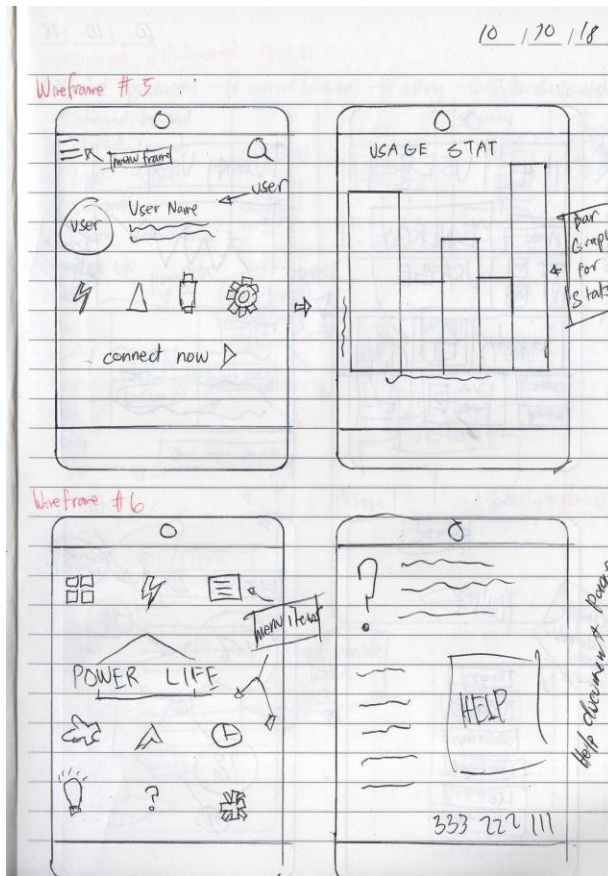 10 / 30 / 18
Wireframe # 5
menu frame
user
User Name
user
connect now
USAGE STAT
bar
Graph
for
Stats
Wireframe # 6
menu items
POWER LIFE
?
?
HElP
Help document
333 222 111